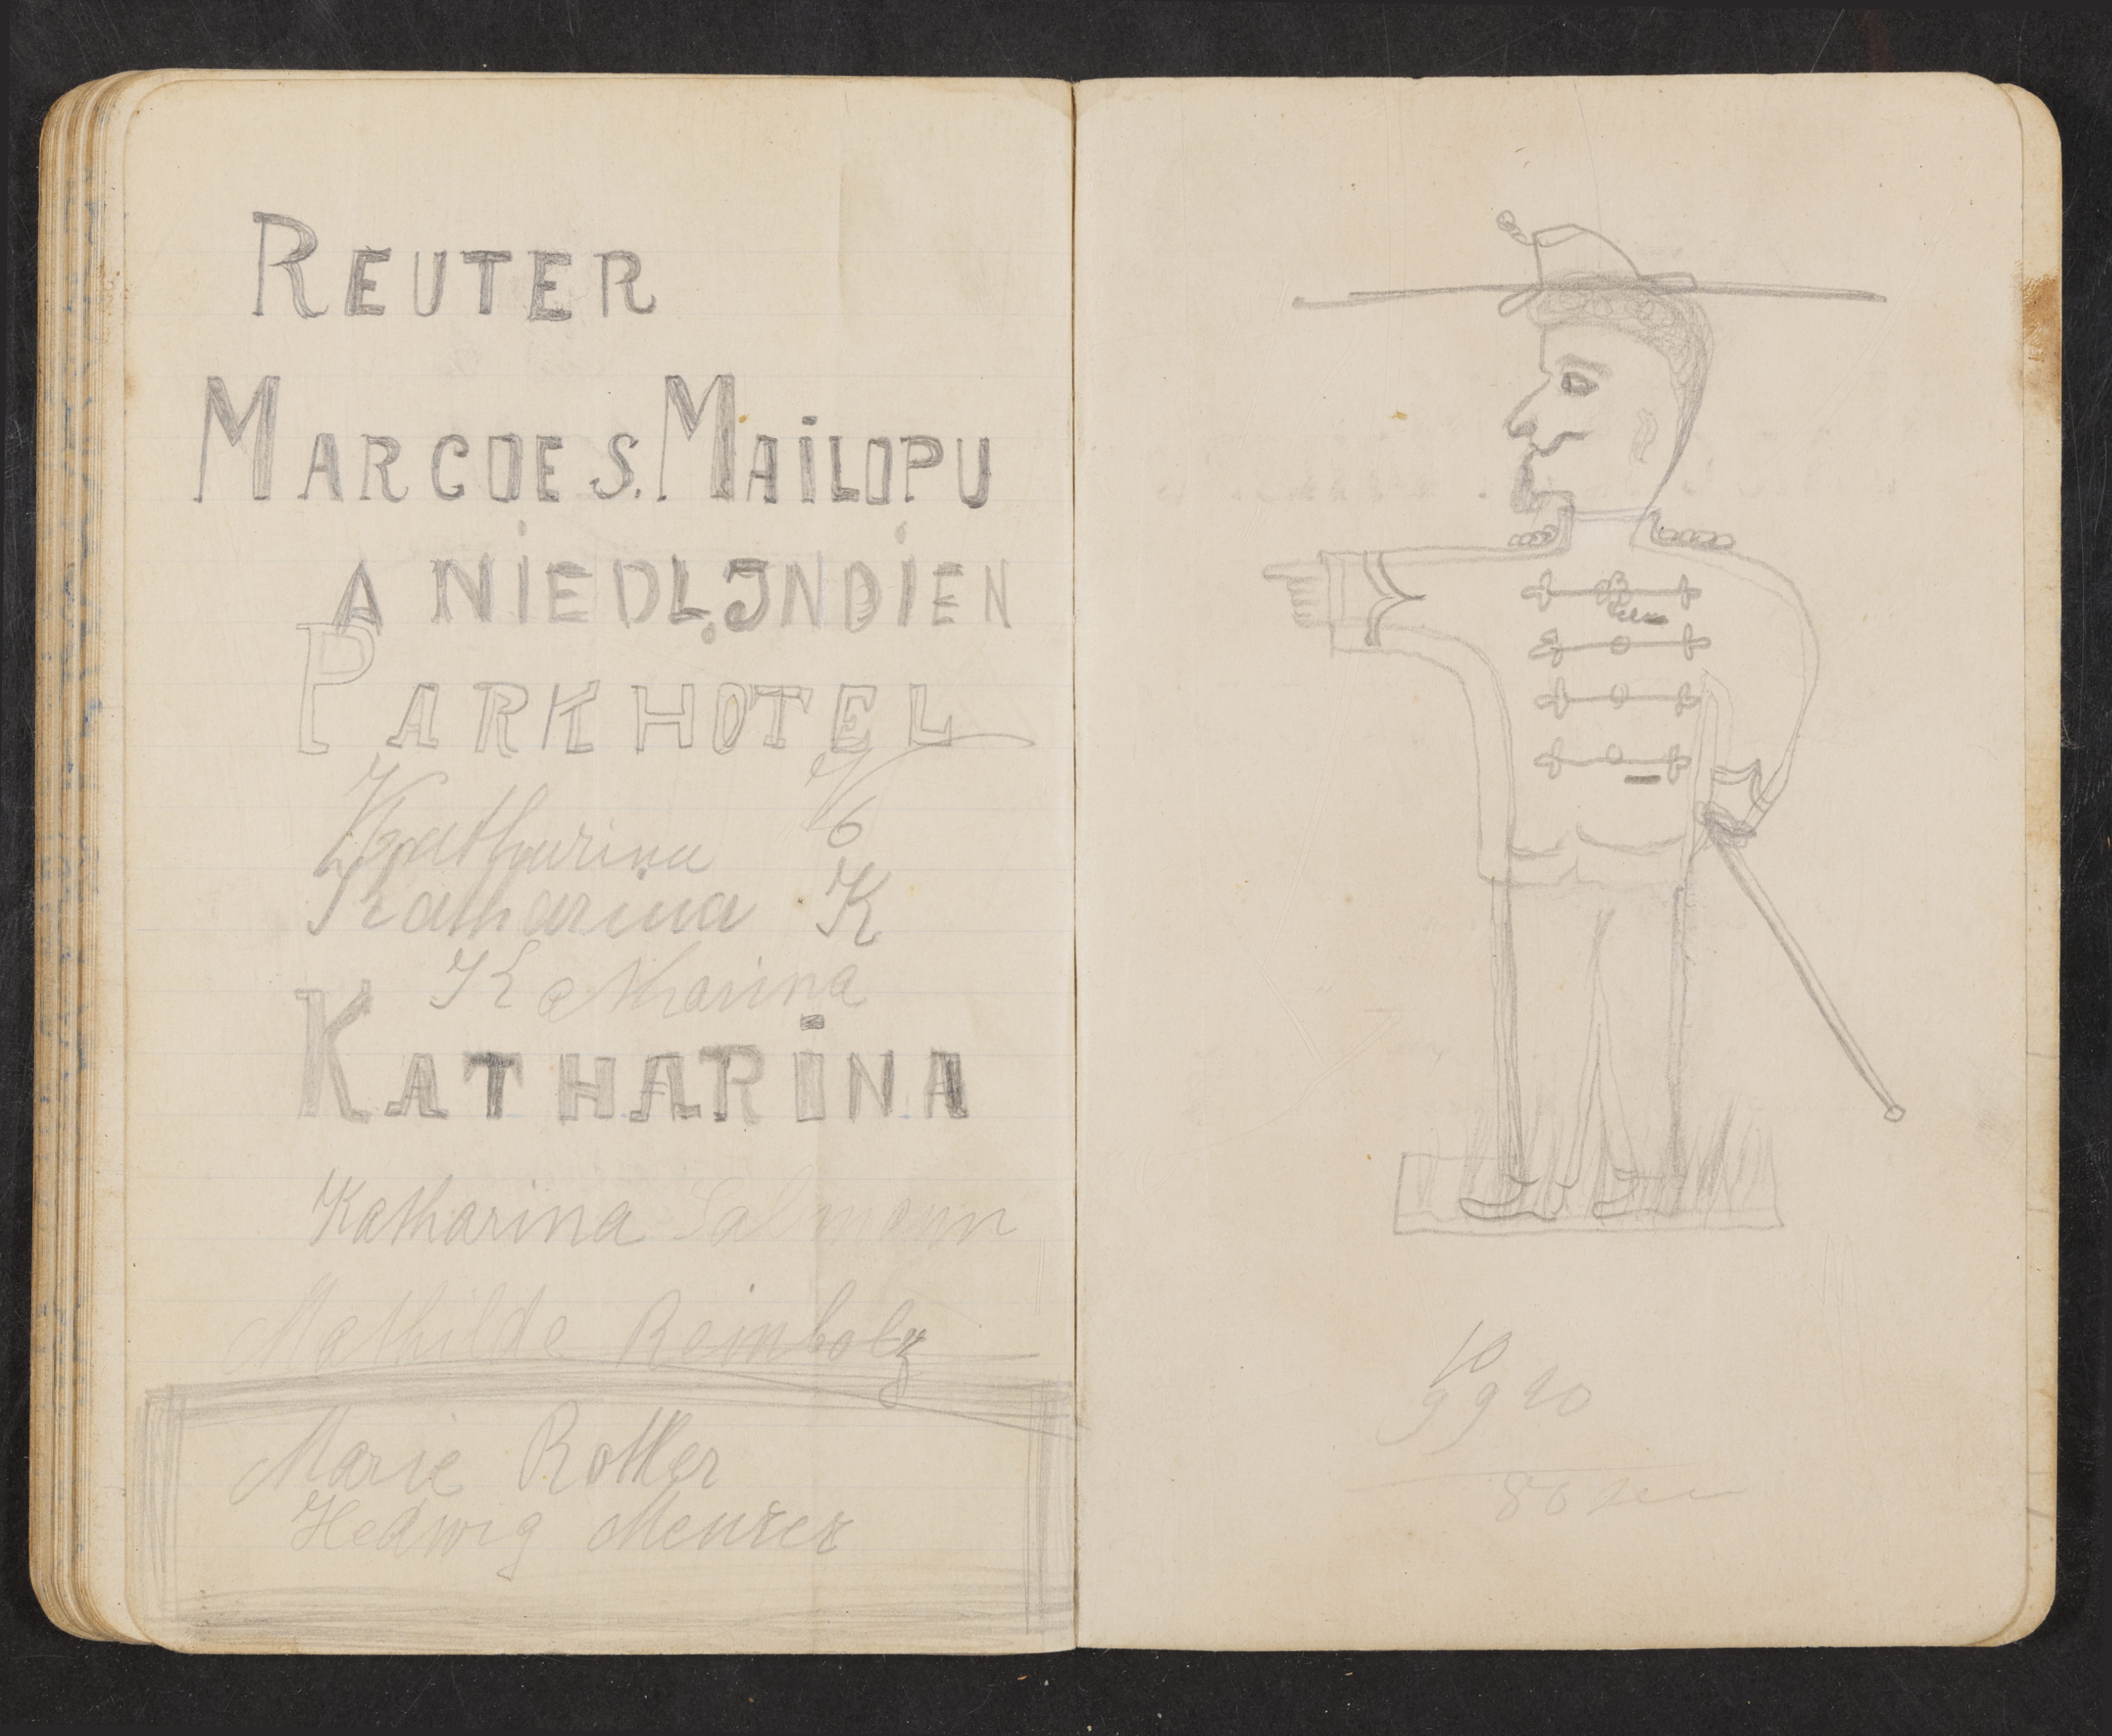 REUTER
MARCOE S. MAiLOPU
A NiEDL. JNDiEN
PARKHOTEL
Katharina
6
Katharina K
Katharina
KATHARiNA
Katharina Salmann
Mathilde Reinbolz
Marie Rotker
Hedwig Meurer
10
99 90